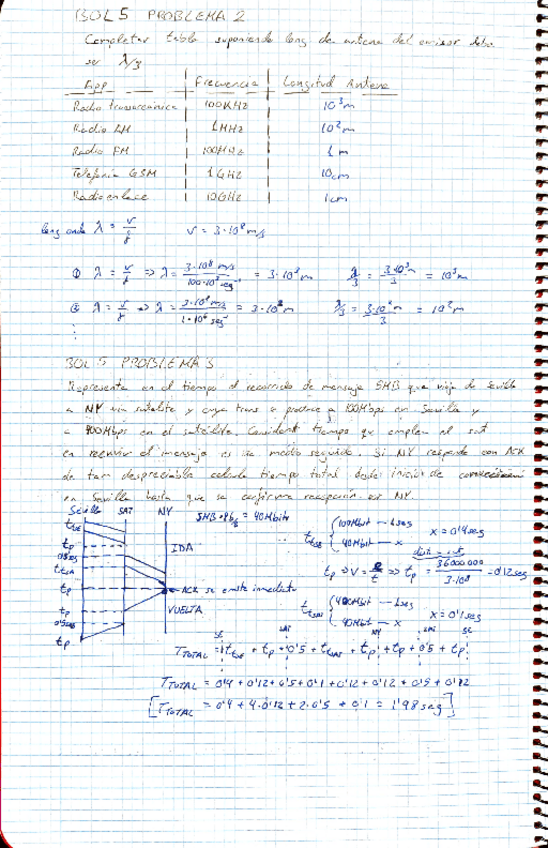 BOL 5 PROBLEMA 2
Completar tabla suponiendo long de antena del emisor debe
ser λ/3
Tipo Frecuencia Longitud Antena
Radio transoceánica 100KHz 10³m
Radio AM 1MHz 10²m
Radio FM 100MHz 1m
Telefonía GSM 1GHz 10cm
Radioenlace 10GHz 1cm
long onda λ = v/f v = 3·10⁸ m/s
① λ = v/f => λ = 3·10⁸ m/s / 100·10³ seg⁻¹ = 3·10³m λ/3 = 3·10³m/3 = 10³m
② λ = v/f => λ = 3·10⁸ m/s / 1·10⁶ seg⁻¹ = 3·10²m λ/3 = 3·10²m/3 = 10²m
⋮
BOL 5 PROBLEMA 3
Representa en el tiempo el recorrido de mensaje 5MB que viaja de Sevilla
a NY vía satelite y cuya trans se produce a 100Mbps en Sevilla y
a 400Mbps en el satélite. Consident tiempo que emplea el sat
en reenviar el mensaje es de medio segundo. Si NY responde con ACK
de tam despreciable calcula tiempo total desde inicio de
en Sevilla hasta que se confirma recepción en NY.
Sevilla SAT NY
5MB·8b/B = 40Mbits
ttSE
tp
0'5seg
ttSA
tp
tp
0'5seg
tp
IDA
ACK se emite inmediato
VUELTA
ttSE { 100Mbit — 1seg
40Mbit — x x = 0'4seg
tp => v = e/t => tp = 36000000 / 3·10⁸ = 0'12seg
ttSAT { 400Mbit — 1seg
40Mbit — x x = 0'1seg
SE SAT NY SAT SE
TTOTAL = ttSE + tp + 0'5 + ttSAT + tp + tp + 0'5 + tp
TTOTAL = 0'4 + 0'12 + 0'5 + 0'1 + 0'12 + 0'12 + 0'5 + 0'12
[TTOTAL = 0'4 + 4·0'12 + 2·0'5 + 0'1 = 1'98 seg]